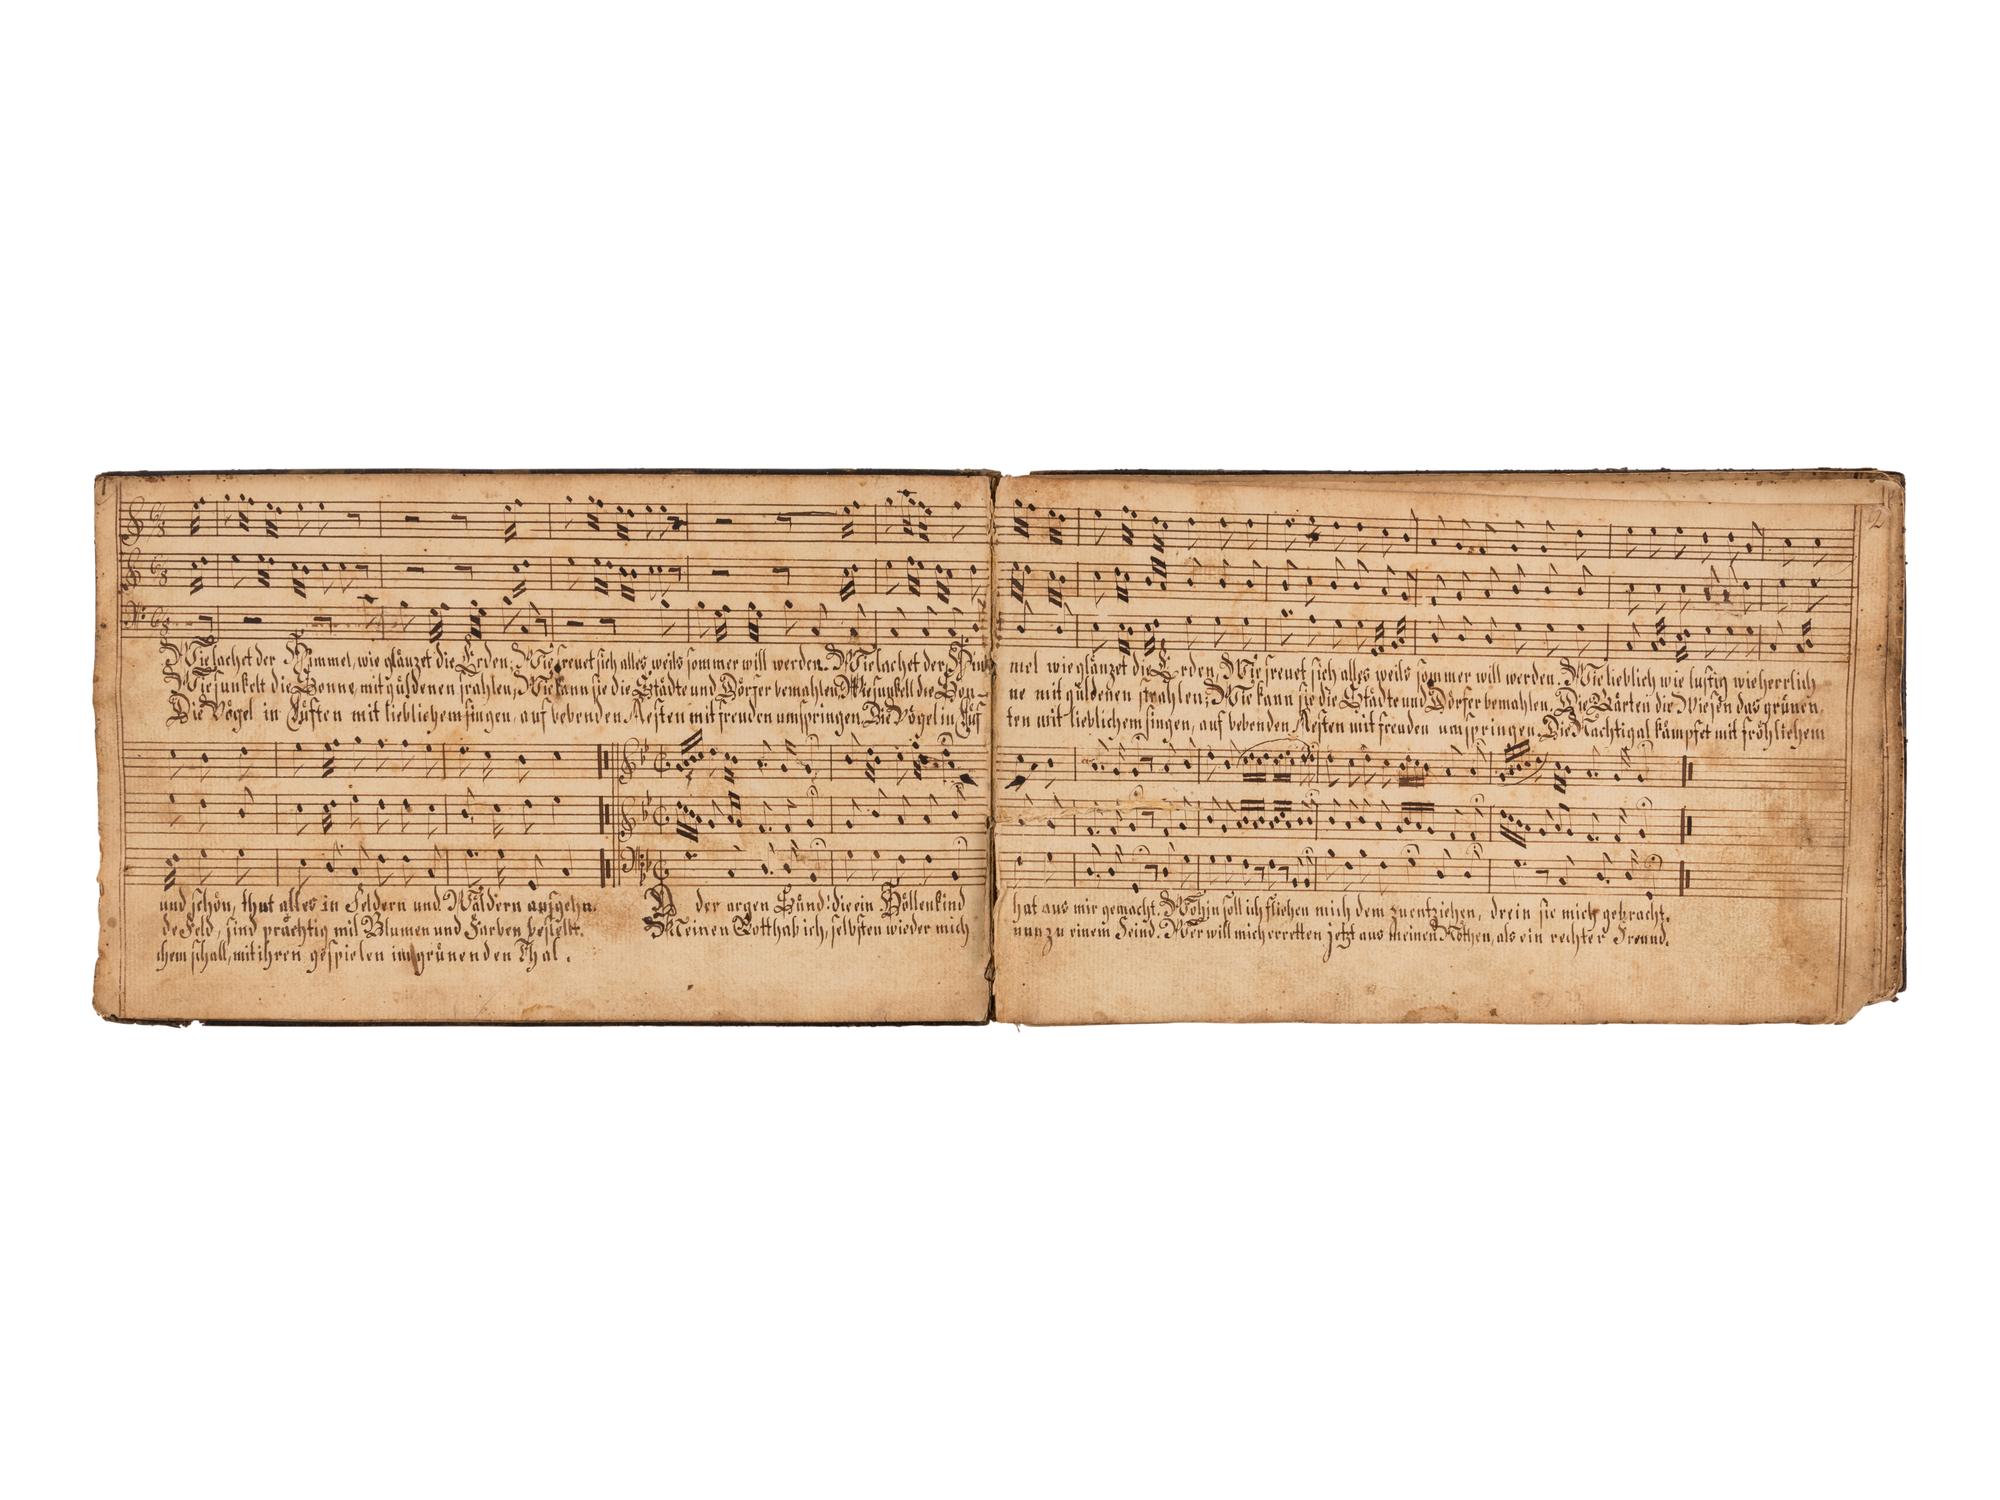 2
Wie lachet der Himmel, wie glänzet die Erden, Wie freuet sich alles weils sommer will werden. Wie lachet der Him
mel wie glänzet die Erden, Wie freuet sich alles weils sommer will werden. Wie lieblich wie lustig wie herrlich
Wie funkelt die Sonne, mit güldenen strahlen, Wie kann sie die Städte und Dörfer bemahlen, Wie funkelt die Son-
ne mit güldenen strahlen, Wie kann sie die Städte und Dörfer bemahlen. Die Gärten die Wiesen das grünen,
Die Vögel in Lüften mit lieblichem singen, auf bebenden Aesten mit freuden umspringen, Die Vögel in Lüf
ten mit lieblichem singen, auf bebenden Aesten mit freuden umspringen, Die Nachtigal kämpfet mit fröhlichem
und schön, thut alles in Feldern und Wäldern aufgehn.
de Feld, sind prächtig mit Blumen und Farben bestellt.
chem schall, mit ihren gespielen im grünenden Thal.
O der argen Sünd! die ein Höllenkind
hat aus mir gemacht. Wohin soll ich fliehen mich dem zu entziehen, drein sie mich gebracht.
Meinen Gott hab ich, selbsten wieder mich
nun zu einem Feind. Wer will mich erretten jetzt aus meinen Nöthen, als ein rechter Freund.